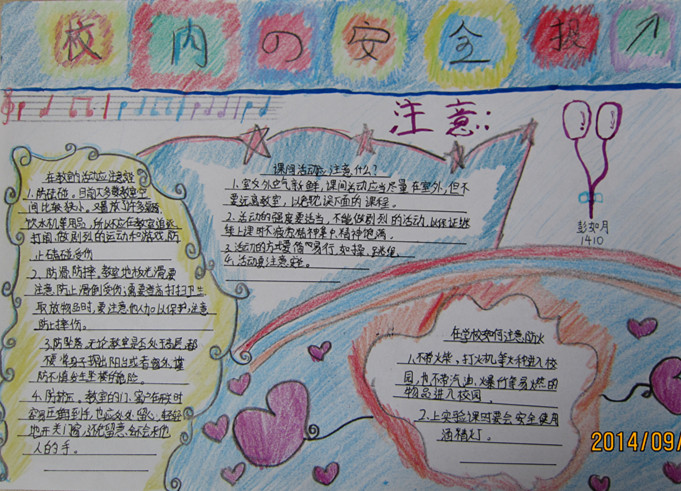 校内の安全报
注意:
彭如月
1410
在教室内活动应注意
1.防磕碰。目前大多数教室空
间比较狭小。又摆放了许多桌椅、
饮水机等用品,所以不应在教室追逐、
打闹,做剧烈的运动和游戏,防
止磕碰受伤
2.防滑、防摔。教室地板光滑要
注意防止滑倒受伤;需要登高打扫卫生
取放物品时,要请他人加以保护,注意
防止摔伤。
3.防坠落。无论教室是否处于高层,都
不要将身子探出阳台或者窗外,谨
防不慎发生坠楼的危险。
4.防挤压。教室的门、窗户在开关时
容易压到手,也应处处留心,轻轻
地开关门窗,还要留意会不会夹他
人的手。
课间活动应注意什么?
1.室外空气新鲜,课间活动应当尽量在室外,但不
要远离教室,以免耽误下面的课程。
2.活动的强度要适当,不能做剧烈的活动,以保证继
续上课时不疲劳精神集中、精神饱满。
3.活动的方式要简便易行,如操
4.活动要注意安全。
在学校如何注意防火
1.不带火柴、打火机等火种进入校
园,也不带汽油、爆竹等易燃的
物品进入校园。
2.上实验课时要会安全使用
酒精灯。
2014/09/